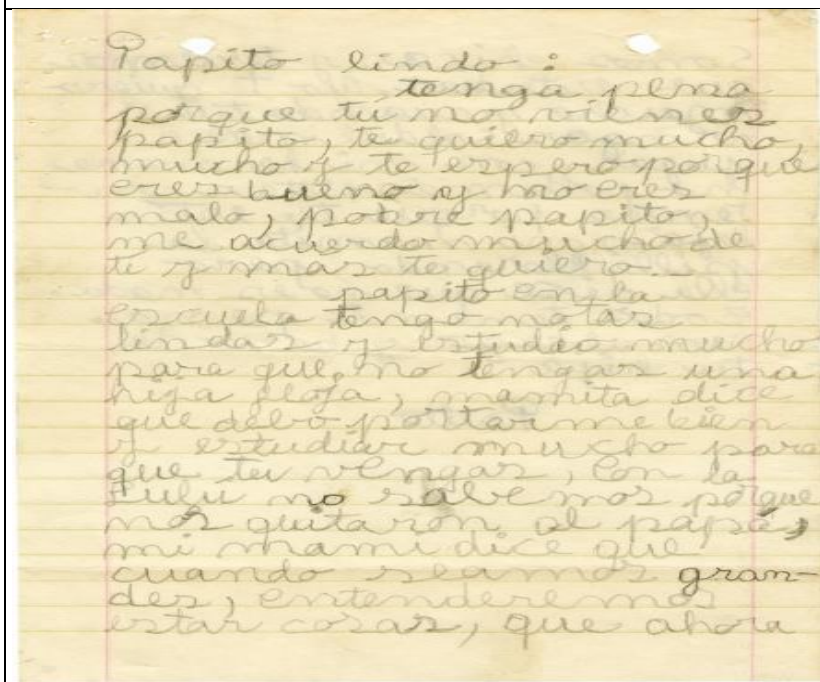 Papito lindo :
tenga pena
porque tú no vienes
papito, te quiero mucho,
mucho y te espero porque
eres bueno y no eres
malo, pobre papito,
me acuerdo mucho de
ti y mas te quiero.
papito en la
escuela tengo notas
lindas y estudio mucho
para que no tengas una
hija floja, mamita dice
que debo portarme bien
y estudiar mucho para
que tu vengas, con la
Lulu no sabemos porque
nos quitaron al papá,
mi mami dice que
cuando seamos gran-
des, entenderemos
estar cosas, que ahora